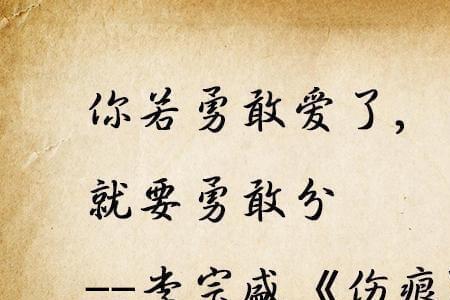 你若勇敢爱了，
就要勇敢分
--李宗盛《伤痕》